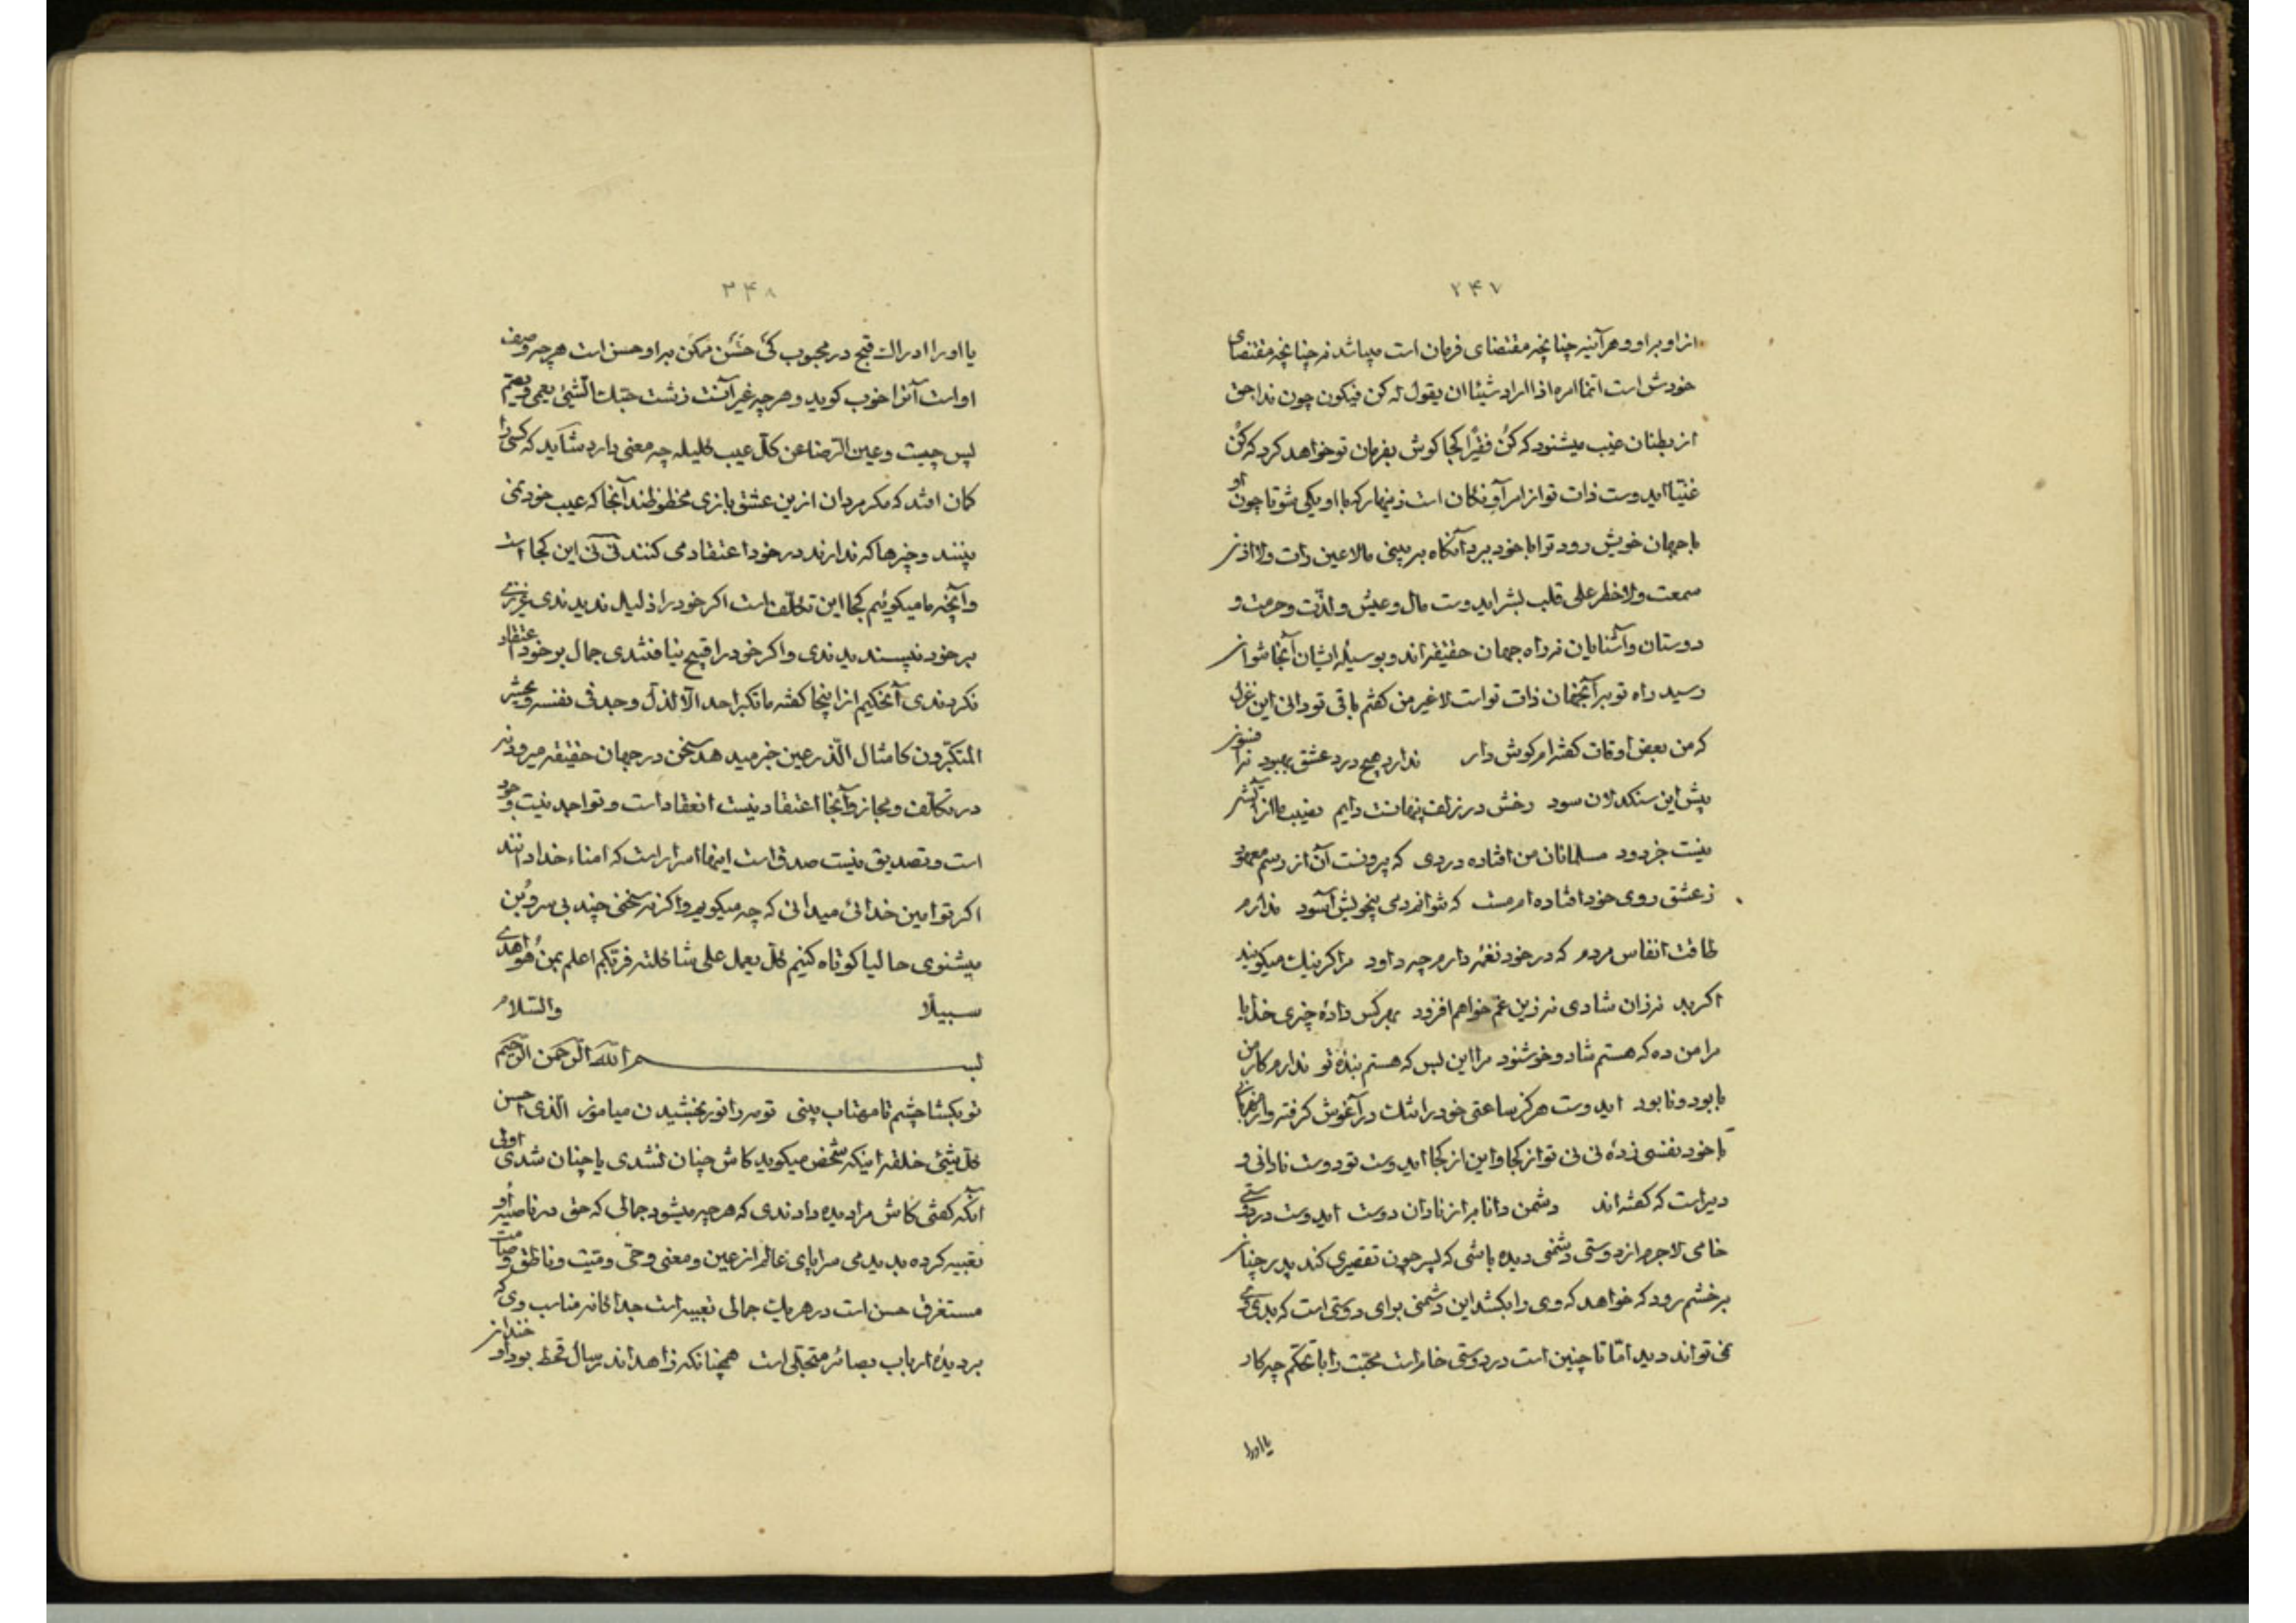 ۲۴۷
از او بر او و هر آینه چنانچه مقتضای فرمان است میباشد نه چنانچه مقتضای
خودش است انّما امره اذا اراد شیئا ان یقول له کن فیکون چون ندا حق
از بطنان غیب میشنود که کُن فقیرًا کجا کوش بفرمان تو خواهد کرد که کُن
غنیّا ایدوست ذات تو از امر او نکان است زینهار که با او یکی شو تا چون او
با جهان خویش رود ترا با خود ببرد آنکاه بر بینی مالا عین رات ولا اذن
سمعت ولا خطر علی قلب بشر ایدوست مال و عیش و لذّت و حرمت و
دوستان و آشنایان نه راه جهان حقیقه‌اند و بوسیلهٔ ایشان آنجا نتوان
رسید راه تو بر آنجهان ذات تو است لا غیر من کفتم باقی تو دانی این غزل
که من بعض اوقات کفته‌ام کوش دار ندارد هیچ درد عشق بهبود ترا فسون
پیش این سنکدلان سود رخش در زلف پنهانست دایم نصیب ما از آتش
نیست جز دود مسلمانان من افتاده دردی که بیرونست آن از رسم معهود
ز عشق روی خود افتاده‌ام مست که نتوانم دمی بیخویش آسود ندارم
طاقت انفاس مردم که در خود نغمه دارم چه داود مرا کر نیک میکویند
اکر بد نه زان شادی نه زین غم خواهم افزود بهر کس دادهٔ چیزی خدایا
مرا من ده که هستم شاد و خوشنود مرا این بس که هستم بندهٔ تو ندارم کار من
با بود و نابود ایدوست هرکز ساعتی خود را تنک در آغوش کرفته و
با خود نفسی زدهٔ نی نی تو از کجا و این از کجا ایدوست تو دوست نادانی و
دیر است که کفته‌اند دشمن دانا به از نادان دوست ایدوست در دوستی
خامی لاجرم از دوستی دشمنی دیده باشی که پسر چون تقصیری کند پدر چنان
بر خشم رود که خواهد که وی را بکشد این دشمنی برای دوستی است که بدی
نمی‌تواند دید امّا تا چنین است در دوستی خام است محبّت را با تحکّم چه کار
یا او را
۳۴۸
یا او را ادراک قبح در محبوب کی حسن ممکن بر او حسن است هر چه وصف
او است آنرا خوب کوید و هر چه غیر آنست زشت حبّک الشّیئ یعمی و یصم
پس چیست و عین الرّضا عن کلّ عیب کلیله چه معنی دارد شاید که کسی را
کمان افتد که مکر مردان از این عشق بازی محظوظند آنجا که عیب خود نمی
بینند و چیزها که ندارند در خود اعتقاد می کنند نی نی این کجا است
و آنچه ما میکوئیم کجا این تکلّف است اکر خود را ذلیل ندیدندی عزیزی
بر خود نپسندیدندی و اکر خود را قبیح نیافتندی جمال بر خود اعتقاد
نکردندی آنحکیم از اینجا کفته ما تکبّر احد الّا لذلّ وجد فی نفسه و یحشر
المتکبّرون کامثال الذّر عین خبر میدهد سخن در جهان حقیقه میرود نه
در تکلّف و مجاز و آنجا اعتقاد نیست انعقاد است و تواجد نیست وجود
است و تصدیق نیست صدق است اینها اسرار است که امناء خدا دانند
اکر تو امین خدائی میدانی که چه میکویم و اکر نه سخنی چند بی سر و بُن
میشنوی حالیا کوتاه کنیم کلّ یعمل علی شاکلته فربّکم اعلم بمن هُو اهدی
سبیلًا والسّلام
بسم اللّه الرّحمن الرّحیم
تو بکشا چشم تا مهتاب بینی تو مه را نور بخشیدن میاموز الّذی احسن
کلّ شیئ خلقه اینکه شخص میکوید کاش چنان نشدی یا چنان شدی اولی
آنکه کفتی کاش مرا دیده دادندی که هر چه میشود جمالی که حق در ناصیهٔ او
تعبیه کرده بدیدمی سراپای عالم از عین و معنی و حیّ و میّت و ناطق و صامت
مستغرق حسن است در هر یک جمالی تعبیه است جداکانه مناسب وی که
بر دیدهٔ ارباب بصائر متجلّی است همچنانکه زاهد اندر سال قحط بود او خندان